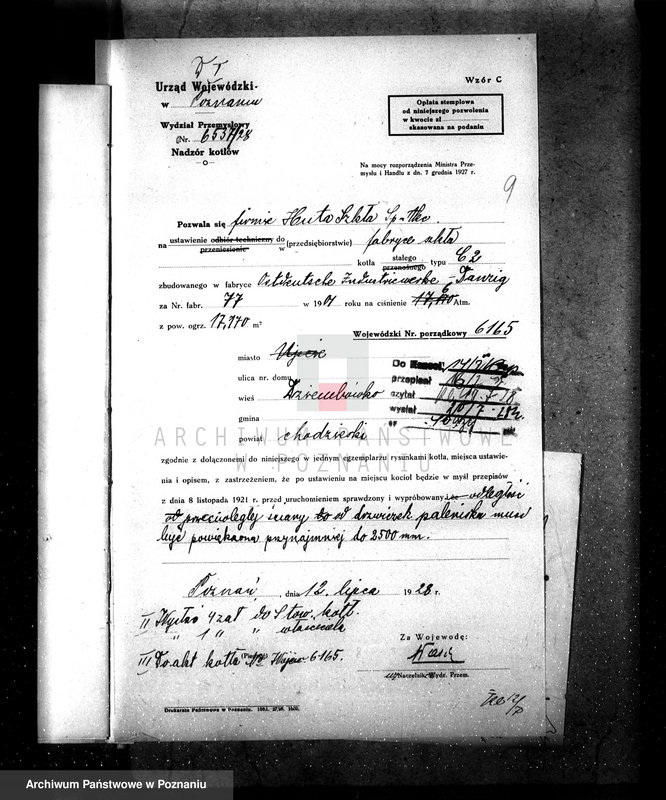 Urząd Wojewódzki
w Poznaniu
Wydział Przemysłowy
Nr. 6537/28
Nadzór kotłów
Wzór C
Opłata stemplowa
od niniejszego pozwolenia
w kwocie zł
skasowana na podaniu
Na mocy rozporządzenia Ministra Prze-
mysłu i Handlu z dn. 7 grudnia 1927 r.
9
Pozwala się firmie Huta Szkła Sp-tka
na ustawienie odbiór techniczny przeniesienie do w (przedsiębiorstwie) fabryce szkła
kotła stałego przenośnego typu C2
zbudowanego w fabryce Ostdeutsche Industriewerke Danzig
za Nr. fabr. 77 w 1901 roku na ciśnienie 6 Atm.
z pow. ogrz. 17,170 m²
Wojewódzki Nr. porządkowy 6165
miasto Ujście
ulica nr. domu
wieś Dziembówko
gmina
powiat chodzieski
Do Kancel.
przepisał
czytał
wysłał
ARCHIWUM PAŃSTWOWE
W POZNANIU
zgodnie z dołączonemi do niniejszego w jednym egzemplarzu rysunkami kotła, miejsca ustawie-
nia i opisem, z zastrzeżeniem, że po ustawieniu na miejscu kocioł będzie w myśl przepisów
z dnia 8 listopada 1921 r. przed uruchomieniem sprawdzony i wypróbowany odległość
od przeciwległej ściany do od drzwiczek paleniska musi
być powiększona przynajmniej do 2500 mm.
Poznań, dnia 12 lipca 1928 r.
II Wysłać 4 zał do Stow. kotł.
" 1 " " właściciela
III Do akt kotła Nr Wojew 6165.
(Pieczęć)
Za Wojewodę:
Naczelnik Wydz. Przem.
12/7
Drukarnia Państwowa w Poznaniu.
Archiwum Państwowe w Poznaniu